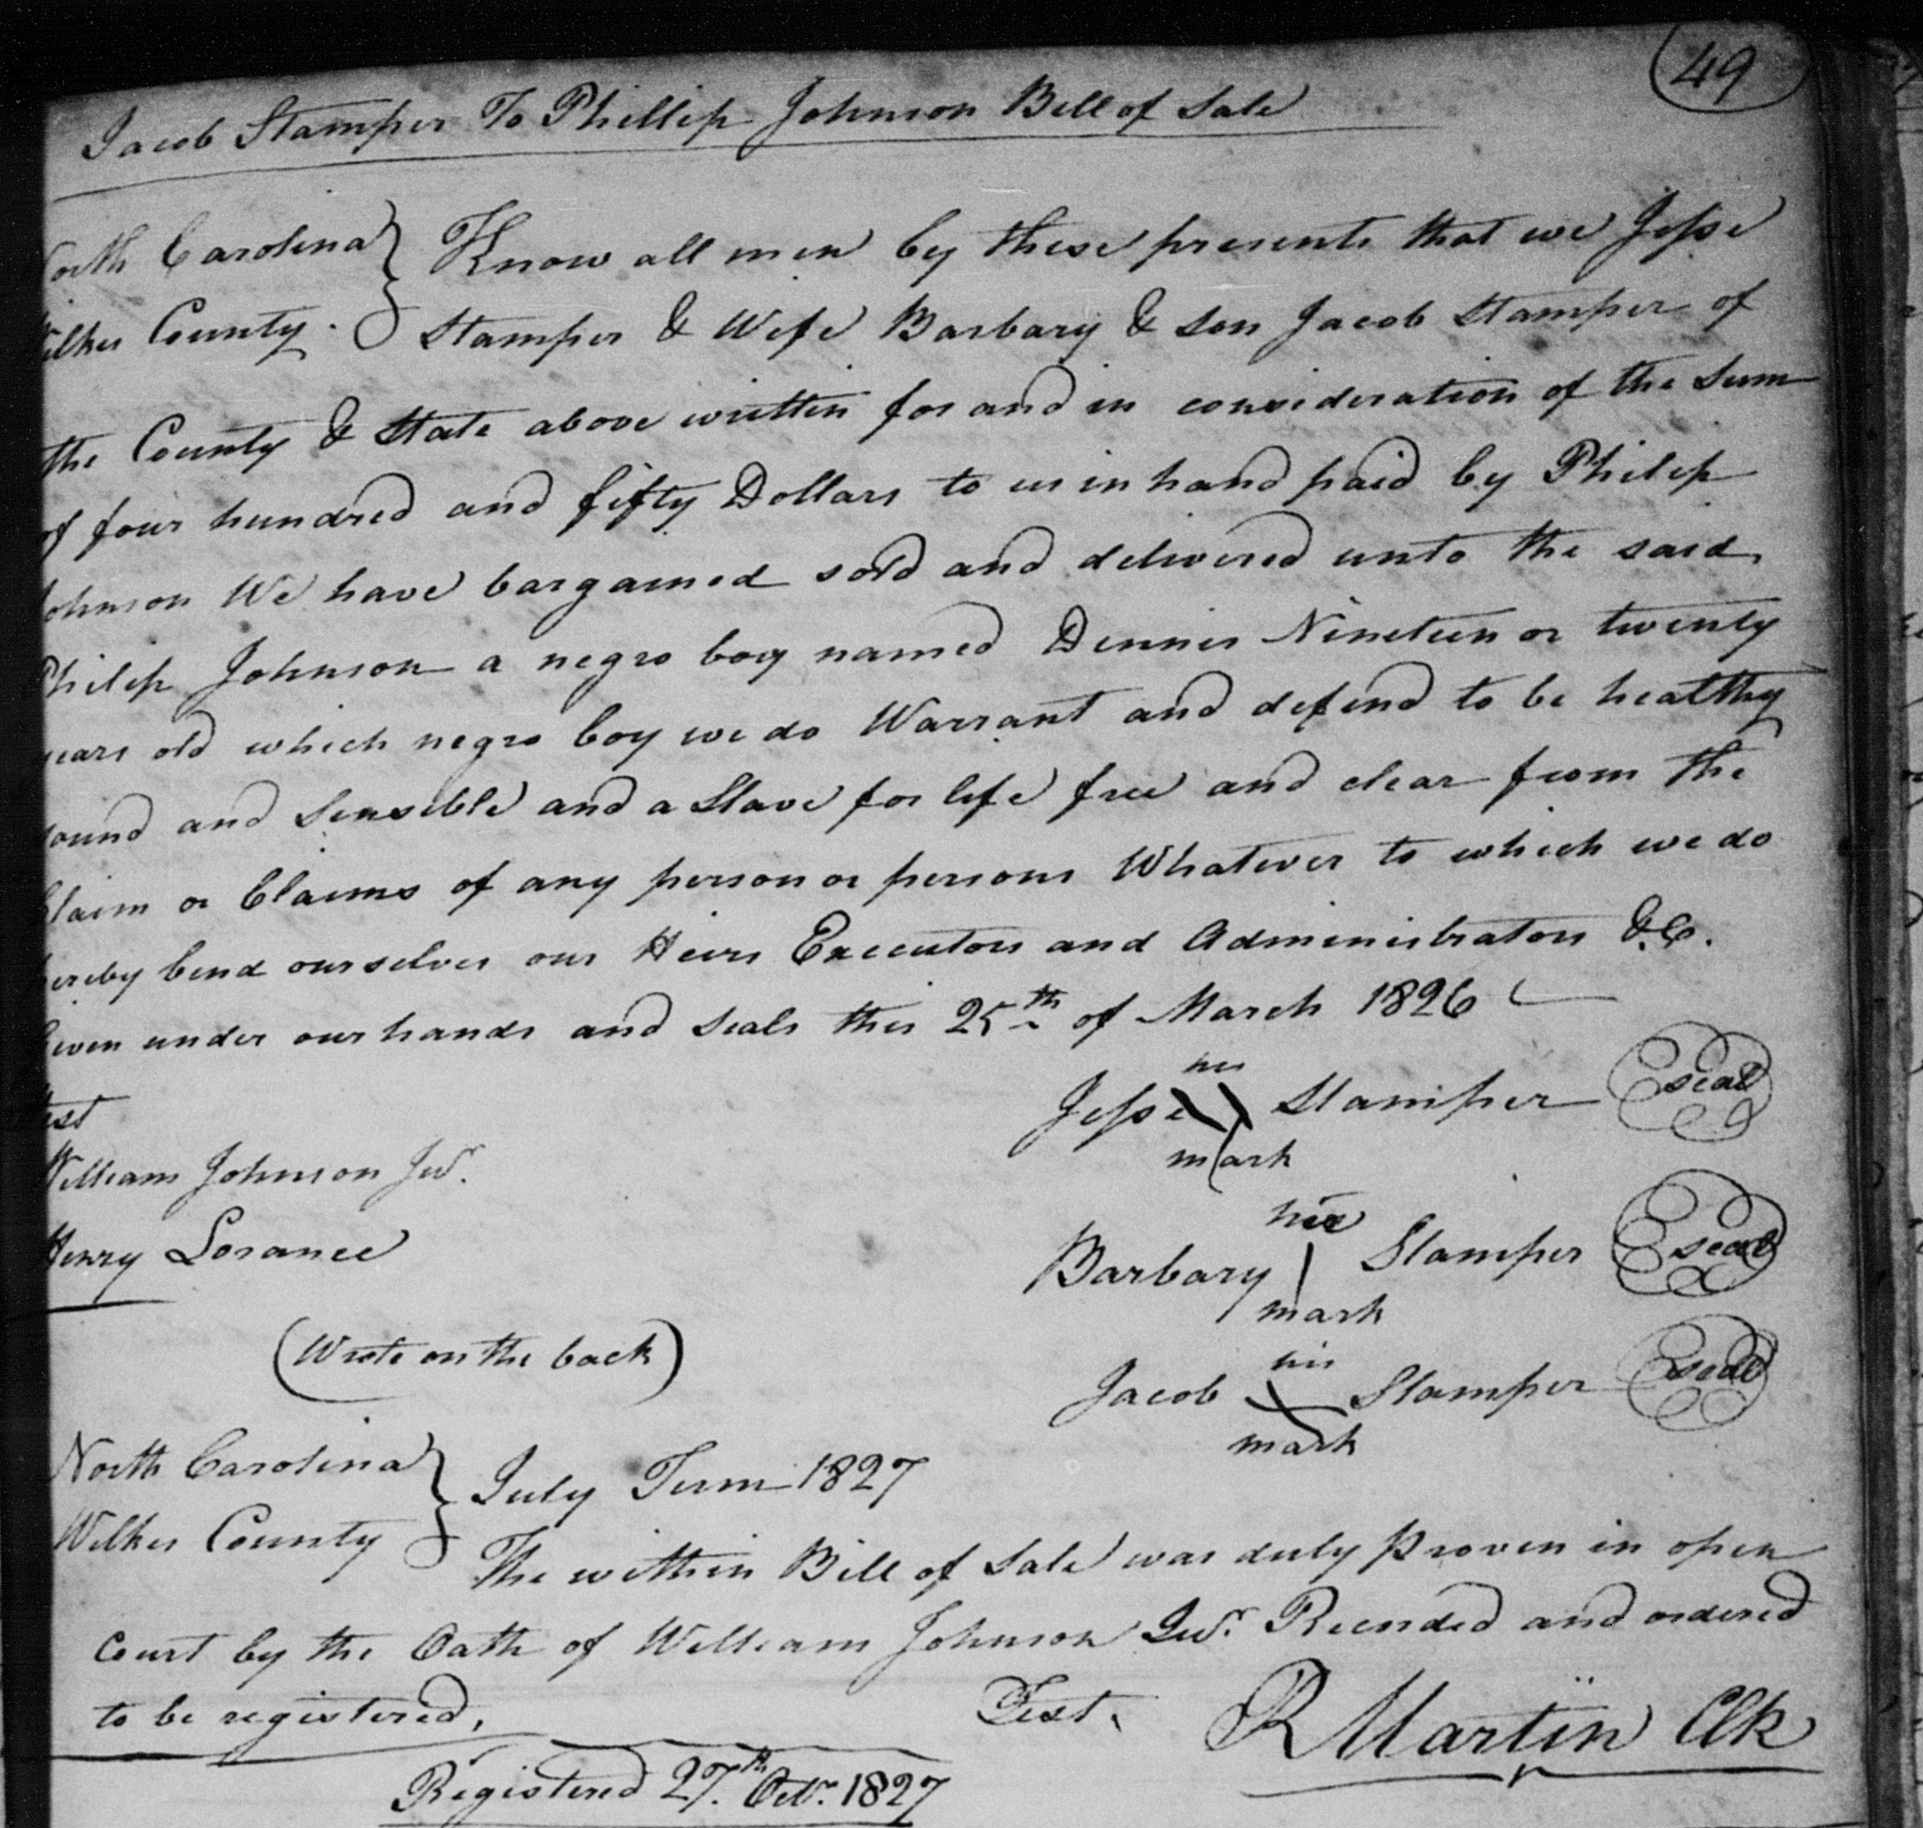 49
Jacob Stamper To Phillip Johnson Bill of Sale
orth Carolina } Know all men by these presents that we Jesse
ilkes County. } Stamper & Wife Barbary & Son Jacob Stamper of
the County & State above written for and in consideration of the Sum
of four hundred and fifty Dollars to us in hand paid by Philip
Johnson We have bargained sold and delivered unto the said
Philip Johnson a negro boy named Dennis Nineteen or twenty
years old which negro boy we do Warrant and defend to be healthy
sound and Sensible and a Slave for life free and clear from the
Claim or Claims of any person or persons Whatever to which we do
hereby bind ourselves our Heirs Executors and Administrators &C.
Given under our hands and seals this 25th of March 1826
his
Jesse Stamper seal
mark
est
William Johnson Jur.
Henry Lorance
her
Barbary | Stamper seal
mark
(Wrote on the back)
his
Jacob X Stamper seal
mark
North Carolina } July Term 1827
Wilkes County } The within Bill of Sale was duly Proven in open
Court by the Oath of William Johnson Jur. Recorded and ordered
to be registered,
Test. R Martin Clk
Registered 27th Octr. 1827